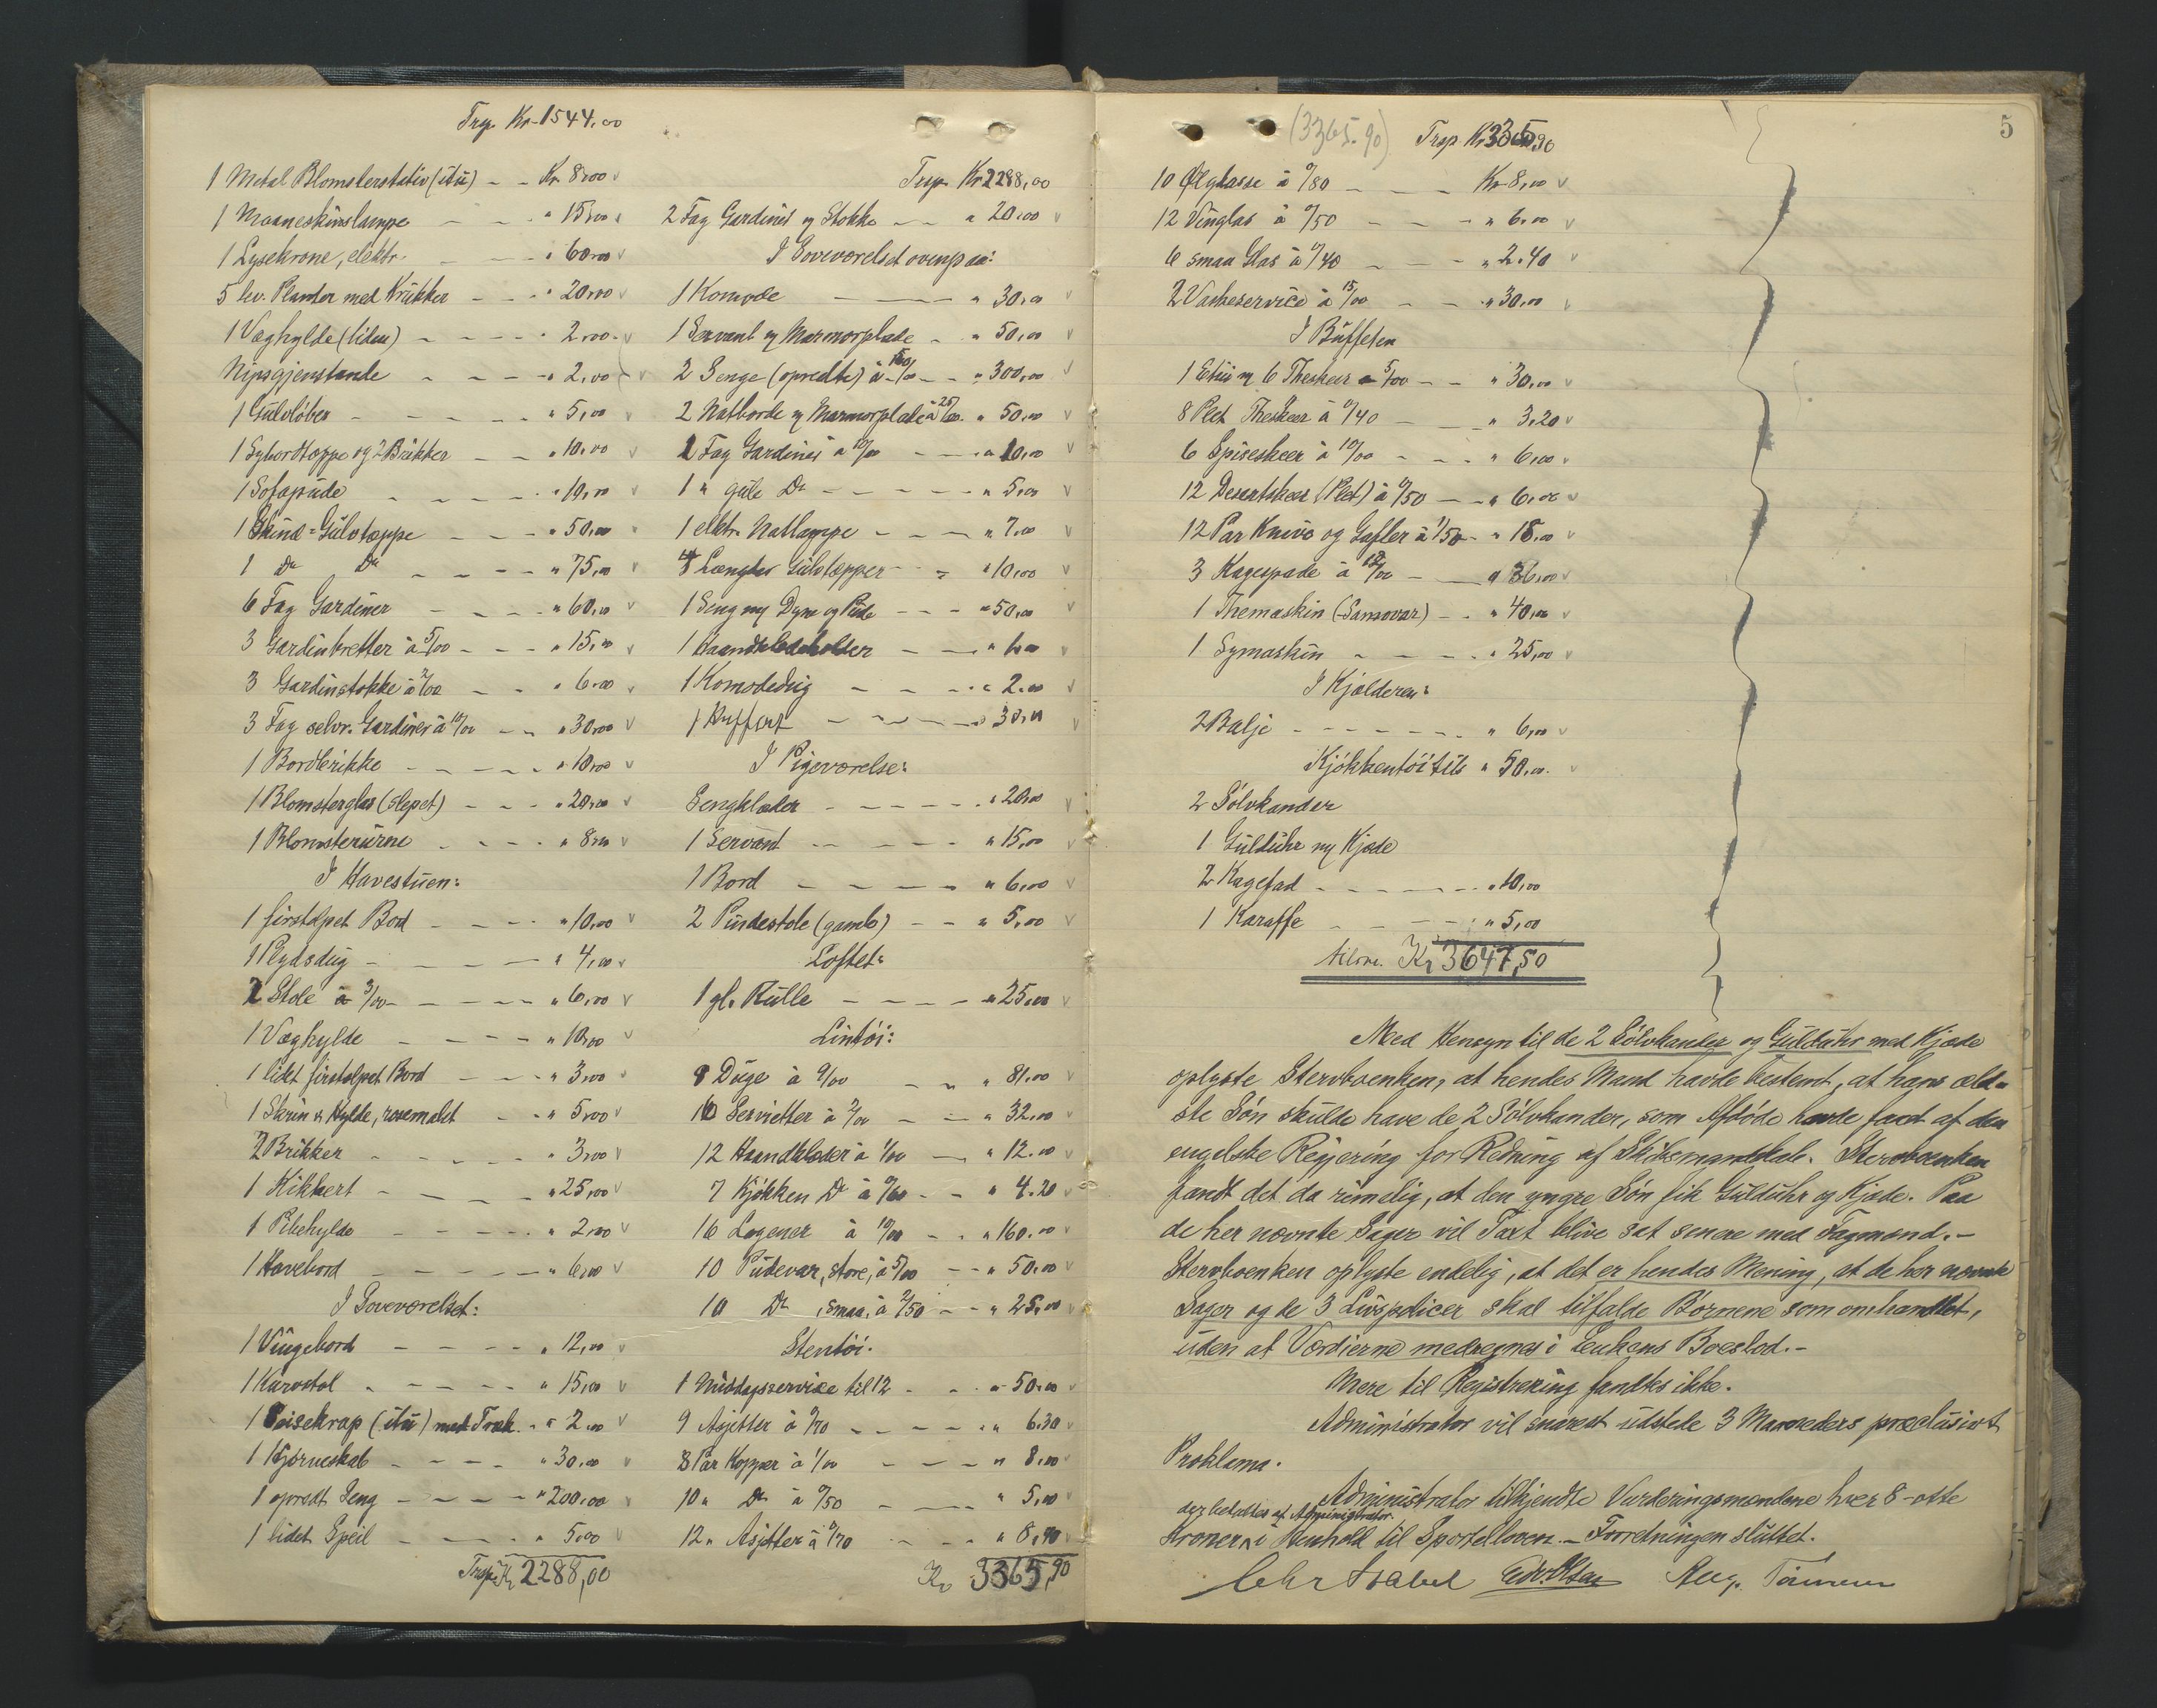 Trsp. Kr. 1544,00
1 Metal Blomsterstativ (itu) - - Kr. 8,00 v
1 Maaneskinslampe - - - " 15,00 v
1 Lysekrone, elektr. - - - " 60,00 v
5 lev. Planter med Krukker - - - " 20,00 v
1 Væghylde (liden) - - - - " 2,00 v
Nipsgjenstande - - - - " 2,00 v
1 Gulvløber - - - - " 5,00 v
1 Sybordtæppe og 2 Brikker - - " 10,00 v
1 Sofapude - - - - " 10,00 v
1 Skind-Gulvtæppe - - - " 50,00 v
1 Do Do - - - - " 75,00 v
6 Fag Gardiner - - - - " 60,00 v
3 Gardinbretter à 5/00 - - - " 15,00 v
3 Gardinstokke à 2/00 - - " 6,00 v
3 Fag selvr. Gardiner à 10/00 - - " 30,00 v
1 Bordbrikke - - - - " 10,00 v
1 Blomsterglas (slepet) - - - " 20,00 v
1 Blomsterurne - - - - " 8,00 v
I Havestuen:
1 firstolpet Bord - - - " 10,00 v
1 Plydsdug - - - - " 4,00 v
2 Stole à 3/00 - - - - " 6,00 v
1 Væghylde - - - - " 10,00 v
1 lidet firstolpet Bord - - - " 3,00 v
1 Skrin & Hylde, rosemalet - - " 5,00 v
2 Brikker - - - - " 3,00 v
1 Kikkert - - - - " 25,00 v
1 Pibehylde - - - - " 2,00 v
1 Havebord - - - - " 6,00 v
I Soveværelset:
1 Vingebord - - - - " 12,00 v
1 Kurvstol - - - - " 15,00 v
1 (itu) med Træk - " 2,00 v
1 Hjørneskab - - - - " 30,00 v
1 opredt Seng - - - - " 200,00 v
1 lidet Speil - - - - " 5,00 v
Trsp. Kr. 2288,00
Trsp. Kr. 2288,00
2 Fag Gardiner og Stokke - - " 20,00 v
I Soveværelset ovenpaa:
1 Komode - - - " 30,00 v
1 Servant m Marmorplade - - " 50,00 v
2 Senge (opredte) à 150/00 - - " 300,00 v
2 Natborde m Marmorplade à 25/00 - " 50,00 v
1 Fag Gardiner à 10/00 - - - " 10,00 v
1 " gule Do - - - - " 5,00 v
1 elektr. Natlampe - - - " 7,00 v
4 Gulvtæpper - - " 10,00 v
1 Seng m Dyne og Pude - - - " 50,00 v
1 Haandklædeholder - - - " v
1 Komodedug - - - - " 2,00 v
1 Kuffert - - - - " 30,00 v
I Pigeværelse:
Sengklæder - - - - - " 20,00 v
1 Servant - - - - - " 15,00 v
1 Bord - - - - - " 6,00 v
2 Pindestole (gamle) - - " 5,00 v
Loftet:
1 gl. Rulle - - - - " 25,00 v
Lintøi:
9 Duge à 9/00 - - " 81,00 v
16 Servietter à 2/00 - - " 32,00 v
12 Haandklæder à 1/00 - - " 12,00 v
7 Kjøkken Do à 0/60 - - " 4,20 v
16 Lagener à 10/00 - - " 160,00 v
10 Pudevar, store, à 5/00 - - " 50,00 v
10 Do, smaa, à 2/50 - - " 25,00 v
Stentøi.
1 Middagsservise til 12 - - - " 50,00 v
9 Asjetter à 0/70 - - - - " 6,30 v
8 Par Kopper à 1/00 - - - " 8,00 v
10 " Do à 0/50 - - - " 5,00 v
12 " Asjetter à 0/70 - - - " 8,40 v
Kr 3365,90
5
(3365.90) Trsp Kr 3365,90
10 Ølglasse à 0/80 - - - Kr. 8,00 v
12 Vinglas à 0/50 - - - " 6,00 v
6 smaa Glas à 0/40 - - - " 2.40 v
2 Vaskeservice à 15/00 - - - " 30,00 v
I Buffeten
1 Etui m 6 Theskeer à 5/00 - - " 30,00 v
8 Plet Theskeer à 0/40 - - - " 3.20 v
6 Spiseskeer à 10/00 - - - " 6,00 v
12 Desertskeer (Plet) à 0/50 - - " 6,00 v
12 Par Knive og Gafler à 1/50 - " 18,00 v
3 Kagespade à 12/00 - - " 36,00 v
1 Themaskin (Samovar) - - " 40,00 v
1 Symaskin - - - - " 25,00 v
I Kjælderen:
2 Balje - - - - - - " 6,00 v
Kjøkkentøi tils " 50,00 v
2 Sølvkander
1 Gulduhr m Kjæde
2 Kagefad - - - - - - " 10,00
1 Karaffe - - - - " 5,00
tilsm. Kr 3647,50
Med Hensyn til de 2 Sølvkander og Gulduhr med Kjæde
oplyste Stervboenken, at hendes Mand havde bestemt, at hans æld-
ste Søn skulde have de 2 Sølvkander, som Afdøde havde faaet af den
engelske Regjering for Redning af Skibsmandskab. Stervboenken
fandt det da rimelig, at den yngre Søn fik Gulduhr og Kjæde. Paa
de her nævnte Sager vil Taxt blive sat senere med Fagmænd. -
Stervboenken oplyste endelig, at det er hendes Mening, at de her nævnte
Sager og de 3 Livspolicer skal tilfalde Børnene som omhandlet,
uden at Værdierne medregnes i Enkens Boeslod. -
Mere til Registrering fandtes ikke.
Administrator vil snarest udstede 3 Maaneders præclusivt
Proklama.
Administrator tilkjendte Vurderingsmændene hver 8 - otte
der betaltes af Administrator.
Kroner, i Henhold til Sportelloven. - Forretningen sluttet.
Edv. Olsen Aug.